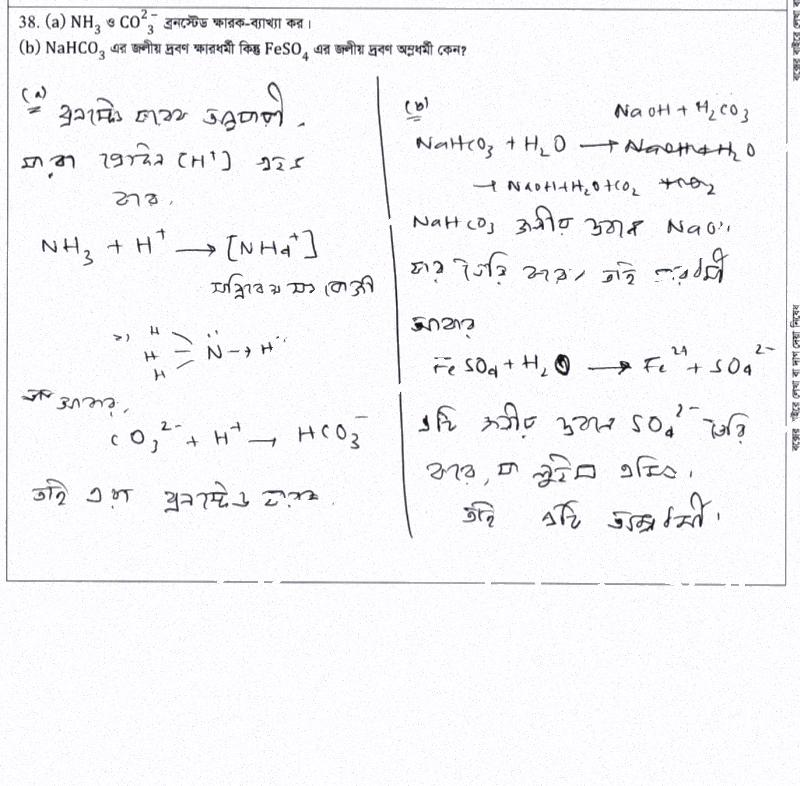 38. (a) NH₃ ও CO²⁻₃ ব্রনস্টেড ক্ষারক-ব্যাখ্যা কর।
(b) NaHCO₃ এর জলীয় দ্রবণ ক্ষারধর্মী কিন্তু FeSO₄ এর জলীয় দ্রবণ অম্লধর্মী কেন?
(a)
ব্রনস্টেড ক্ষারক
যারা প্রোটন (H⁺) গ্রহণ
করে।
NH₃ + H⁺ → [NH₄⁺]
H
H N → H
H
আবার,
CO₃²⁻ + H⁺ → HCO₃⁻
তাই এরা ব্রনস্টেড ক্ষারক।
(b)
NaOH + H₂CO₃
NaHCO₃ + H₂O →
→ NaOH + H₂O + CO₂
NaHCO₃ জলীয় দ্রবণে NaOH
ক্ষার তৈরি করে, তাই ক্ষারধর্মী
আবার
FeSO₄ + H₂O → Fe²⁺ + SO₄²⁻
এটি জলীয় দ্রবণে SO₄²⁻ তৈরি
করে, যা লুইস এসিড।
তাই এটি অম্লধর্মী।